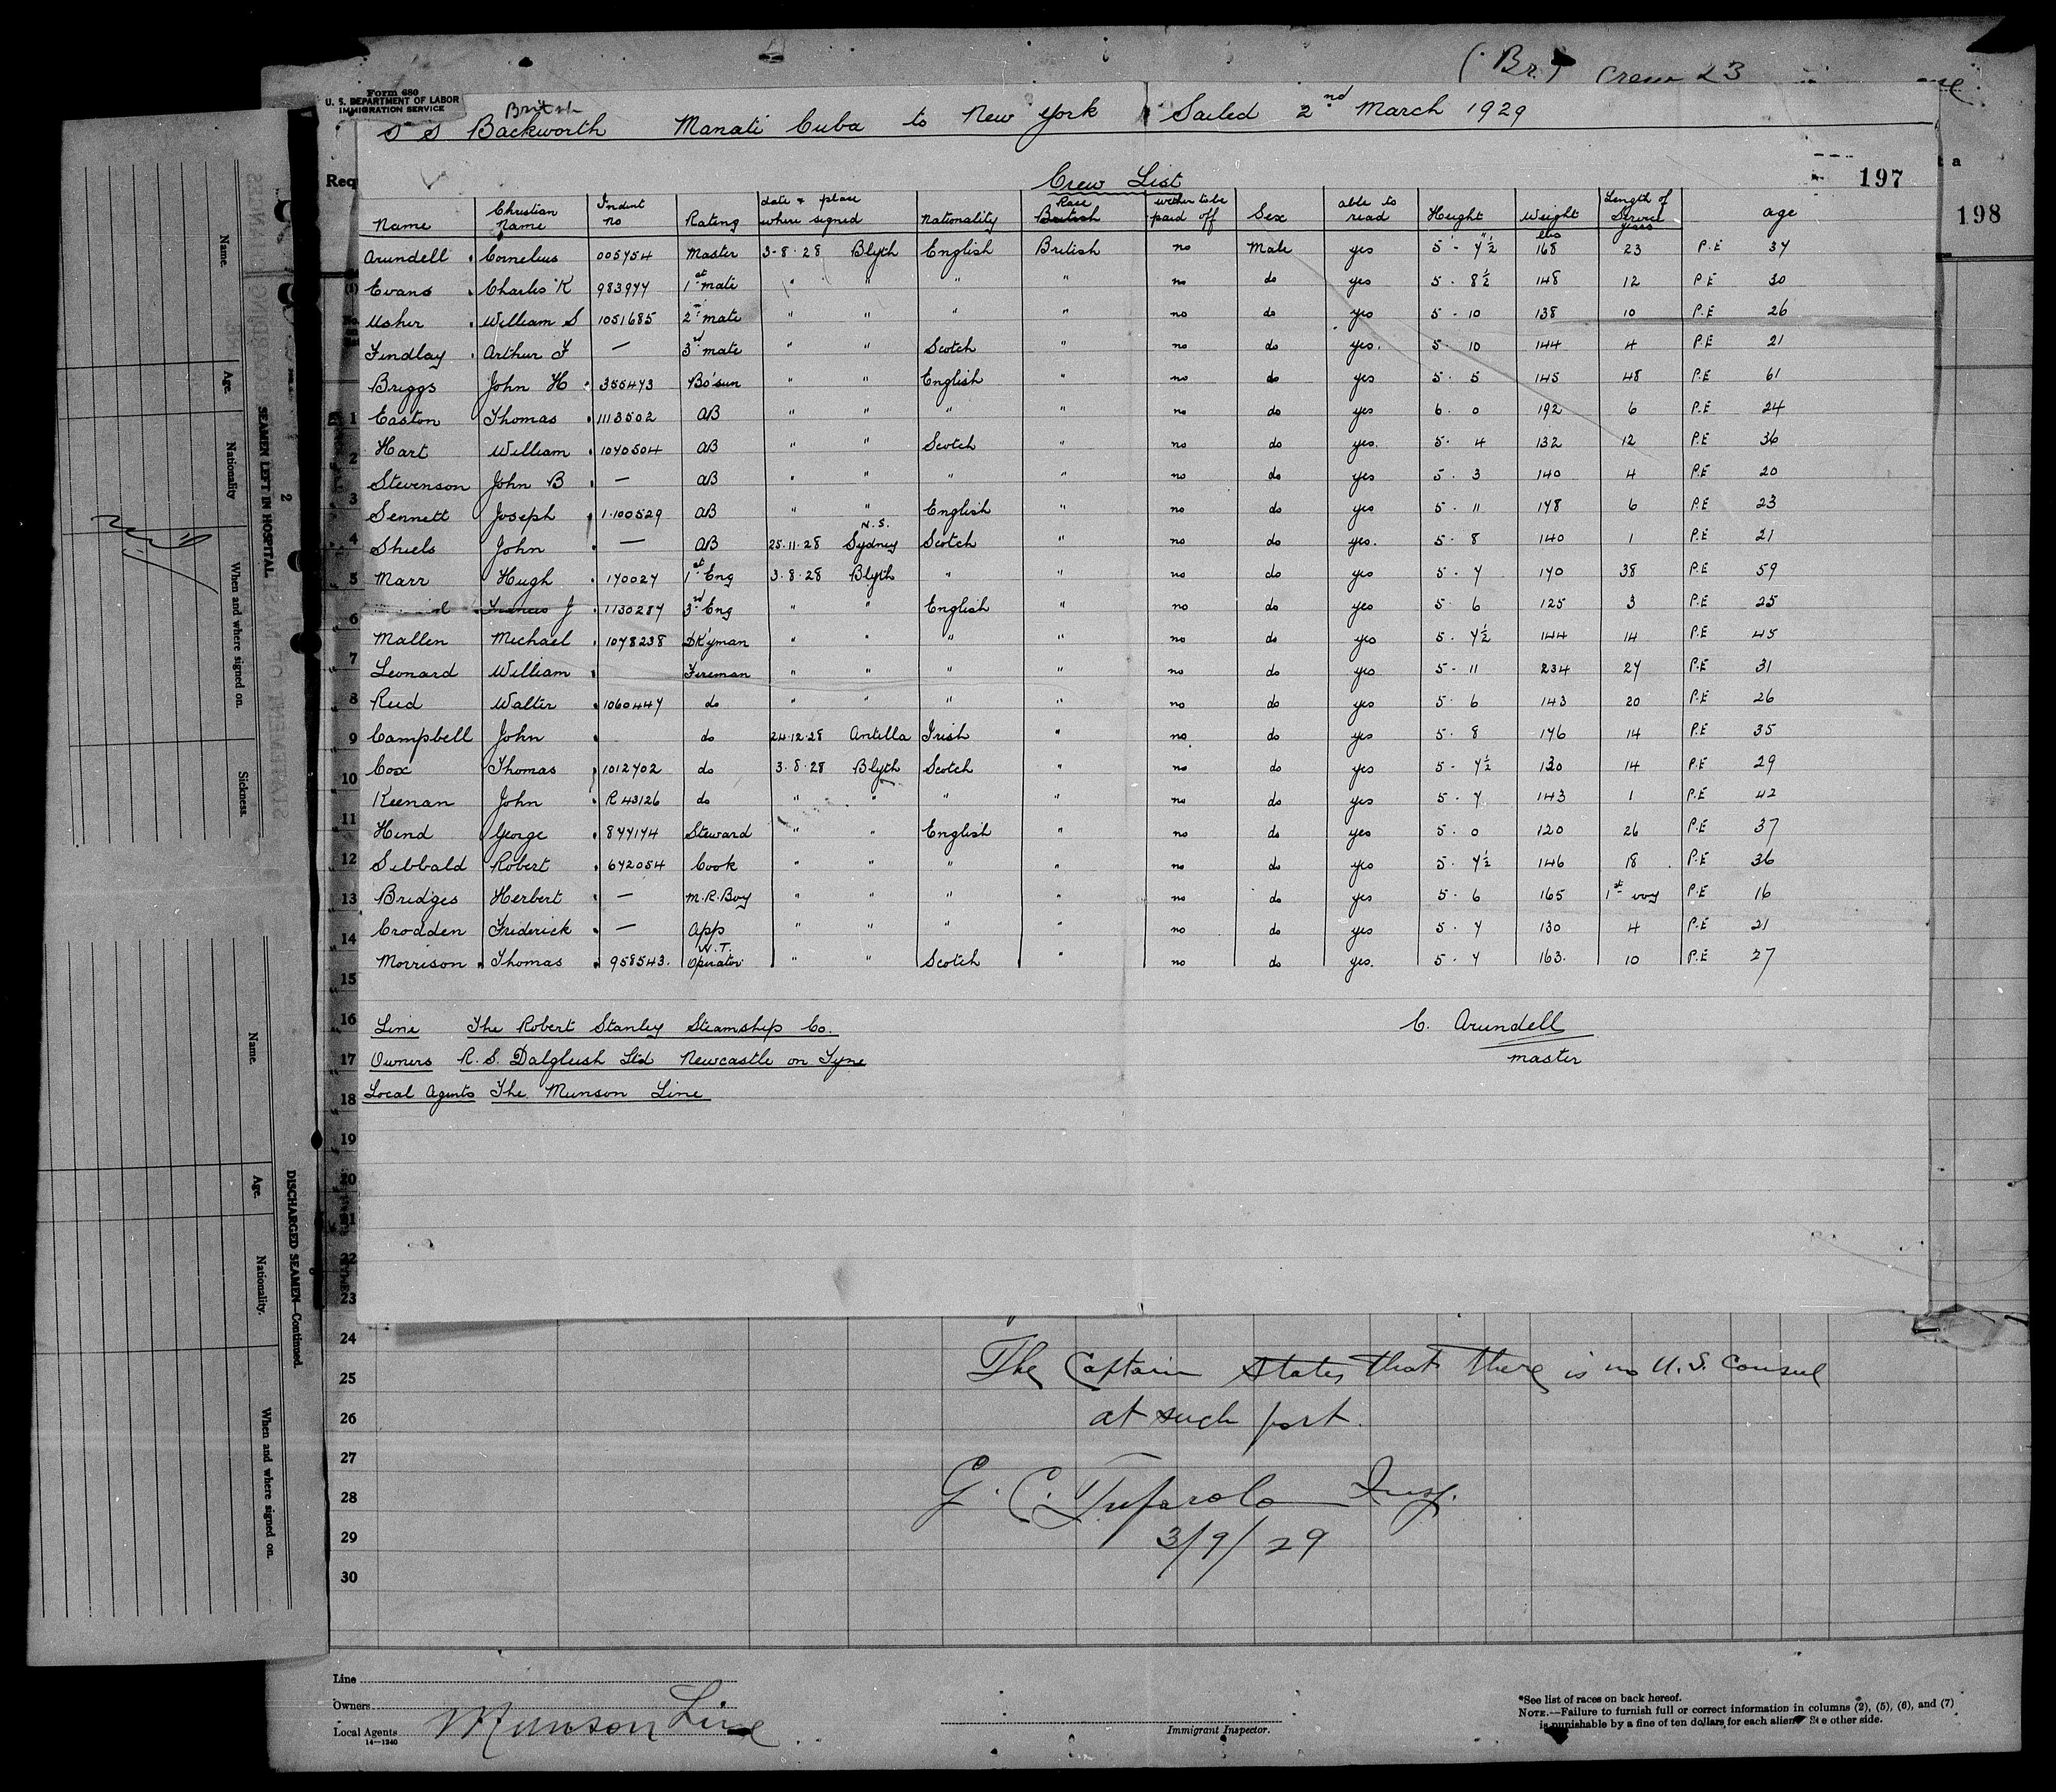 (Br.) Crew 23
Form 680
U. S. DEPARTMENT OF LABOR
IMMIGRATION SERVICE
British
S S Backworth Manati Cuba to New York Sailed 2nd March 1929
Req
197
198
Crew List
Name Christian Name Indent no Rating date & place where signed Nationality Race British wether to be paid off Sex able to read Height Weight lbs Length of Service years age
Arundell Cornelius 005754 Master 3-8-28 Blyth English British no Male yes 5'-7"½ 168 23 P.E 34
Evans Charles K 983977 1st mate " " " " no do yes 5-8½ 148 12 P.E 30
Usher William S 1051685 2nd mate " " " " no do yes 5-10 138 10 P.E 26
Findlay Arthur F — 3rd mate " " Scotch " no do yes. 5-10 144 4 P.E 21
Briggs John H 355473 Bo'sun " " English " no do yes 5-5 145 48 P.E 61
Easton Thomas 1113502 AB " " " " no do yes 6-0 192 6 P.E 24
Hart William 1070504 AB " " Scotch " no do yes. 5-4 132 12 P.E 36
Stevenson John B — AB " " " " no do yes 5-3 140 4 P.E 20
Sennett Joseph 1100529 AB " " English " no do yes 5-11 178 6 P.E 23
Shiels John — AB 25-11-28 N.S. Sydney Scotch " no do yes. 5-8 140 1 P.E 21
Marr Hugh 170027 1st Eng 3-8-28 Blyth " " no do yes 5-7 170 38 P.E 59
Francis J 1130287 3rd Eng " " English " no do yes 5-6 125 3 P.E 25
Mallen Michael 1078238 DK'yman " " " " no do yes 5-7½ 144 14 P.E 45
Leonard William Fireman " " " " no do yes 5-11 234 27 P.E 31
Reed Walter 1060447 do " " " " no do yes 5-6 143 20 P.E 26
Campbell John do 24-12-28 Antilla Irish " no do yes 5-8 176 14 P.E 35
Cox Thomas 1012702 do 3-8-28 Blyth Scotch " no do yes 5-7½ 130 14 P.E 29
Keenan John R 43126 do " " " " no do yes 5-7 143 1 P.E 42
Hind George 877174 Steward " " English " no do yes 5-0 120 26 P.E 37
Sibbald Robert 672054 Cook " " " " no do yes 5-7½ 146 18 P.E 36
Bridges Herbert — M.R. Boy " " " " no do yes 5-6 165 1st voy P.E 16
Crodden Frederick — App " " " " no do yes 5-7 130 4 P.E 21
Morrison Thomas 958543. W.T. Operator " " Scotch " no do yes. 5-7 163. 10 P.E 27
Line The Robert Stanley Steamship Co.
Owners R. S. Dalgliesh Ltd Newcastle on Tyne
Local Agents The Munson Line
C. Arundell
master
1
2
3
4
5
6
7
8
9
10
11
12
13
14
15
16
17
18
19
20
21
22
23
24
25
26
27
28
29
30
The Captain states that there is no U.S. Consul
at such port.
G. C. Tufarolo Insp.
3/9/29
Line
Owners
Local Agents Munson Line
14—1240
Immigrant Inspector.
*See list of races on back hereof.
NOTE.—Failure to furnish full or correct information in columns (2), (5), (6), and (7)
is punishable by a fine of ten dollars for each alien. See other side.
2
SEAMEN LEFT IN HOSPITAL.
Name. Age. Nationality When and where signed on. Sickness.
DISCHARGED SEAMEN—Continued.
Name. Age. Nationality. When and where signed on.